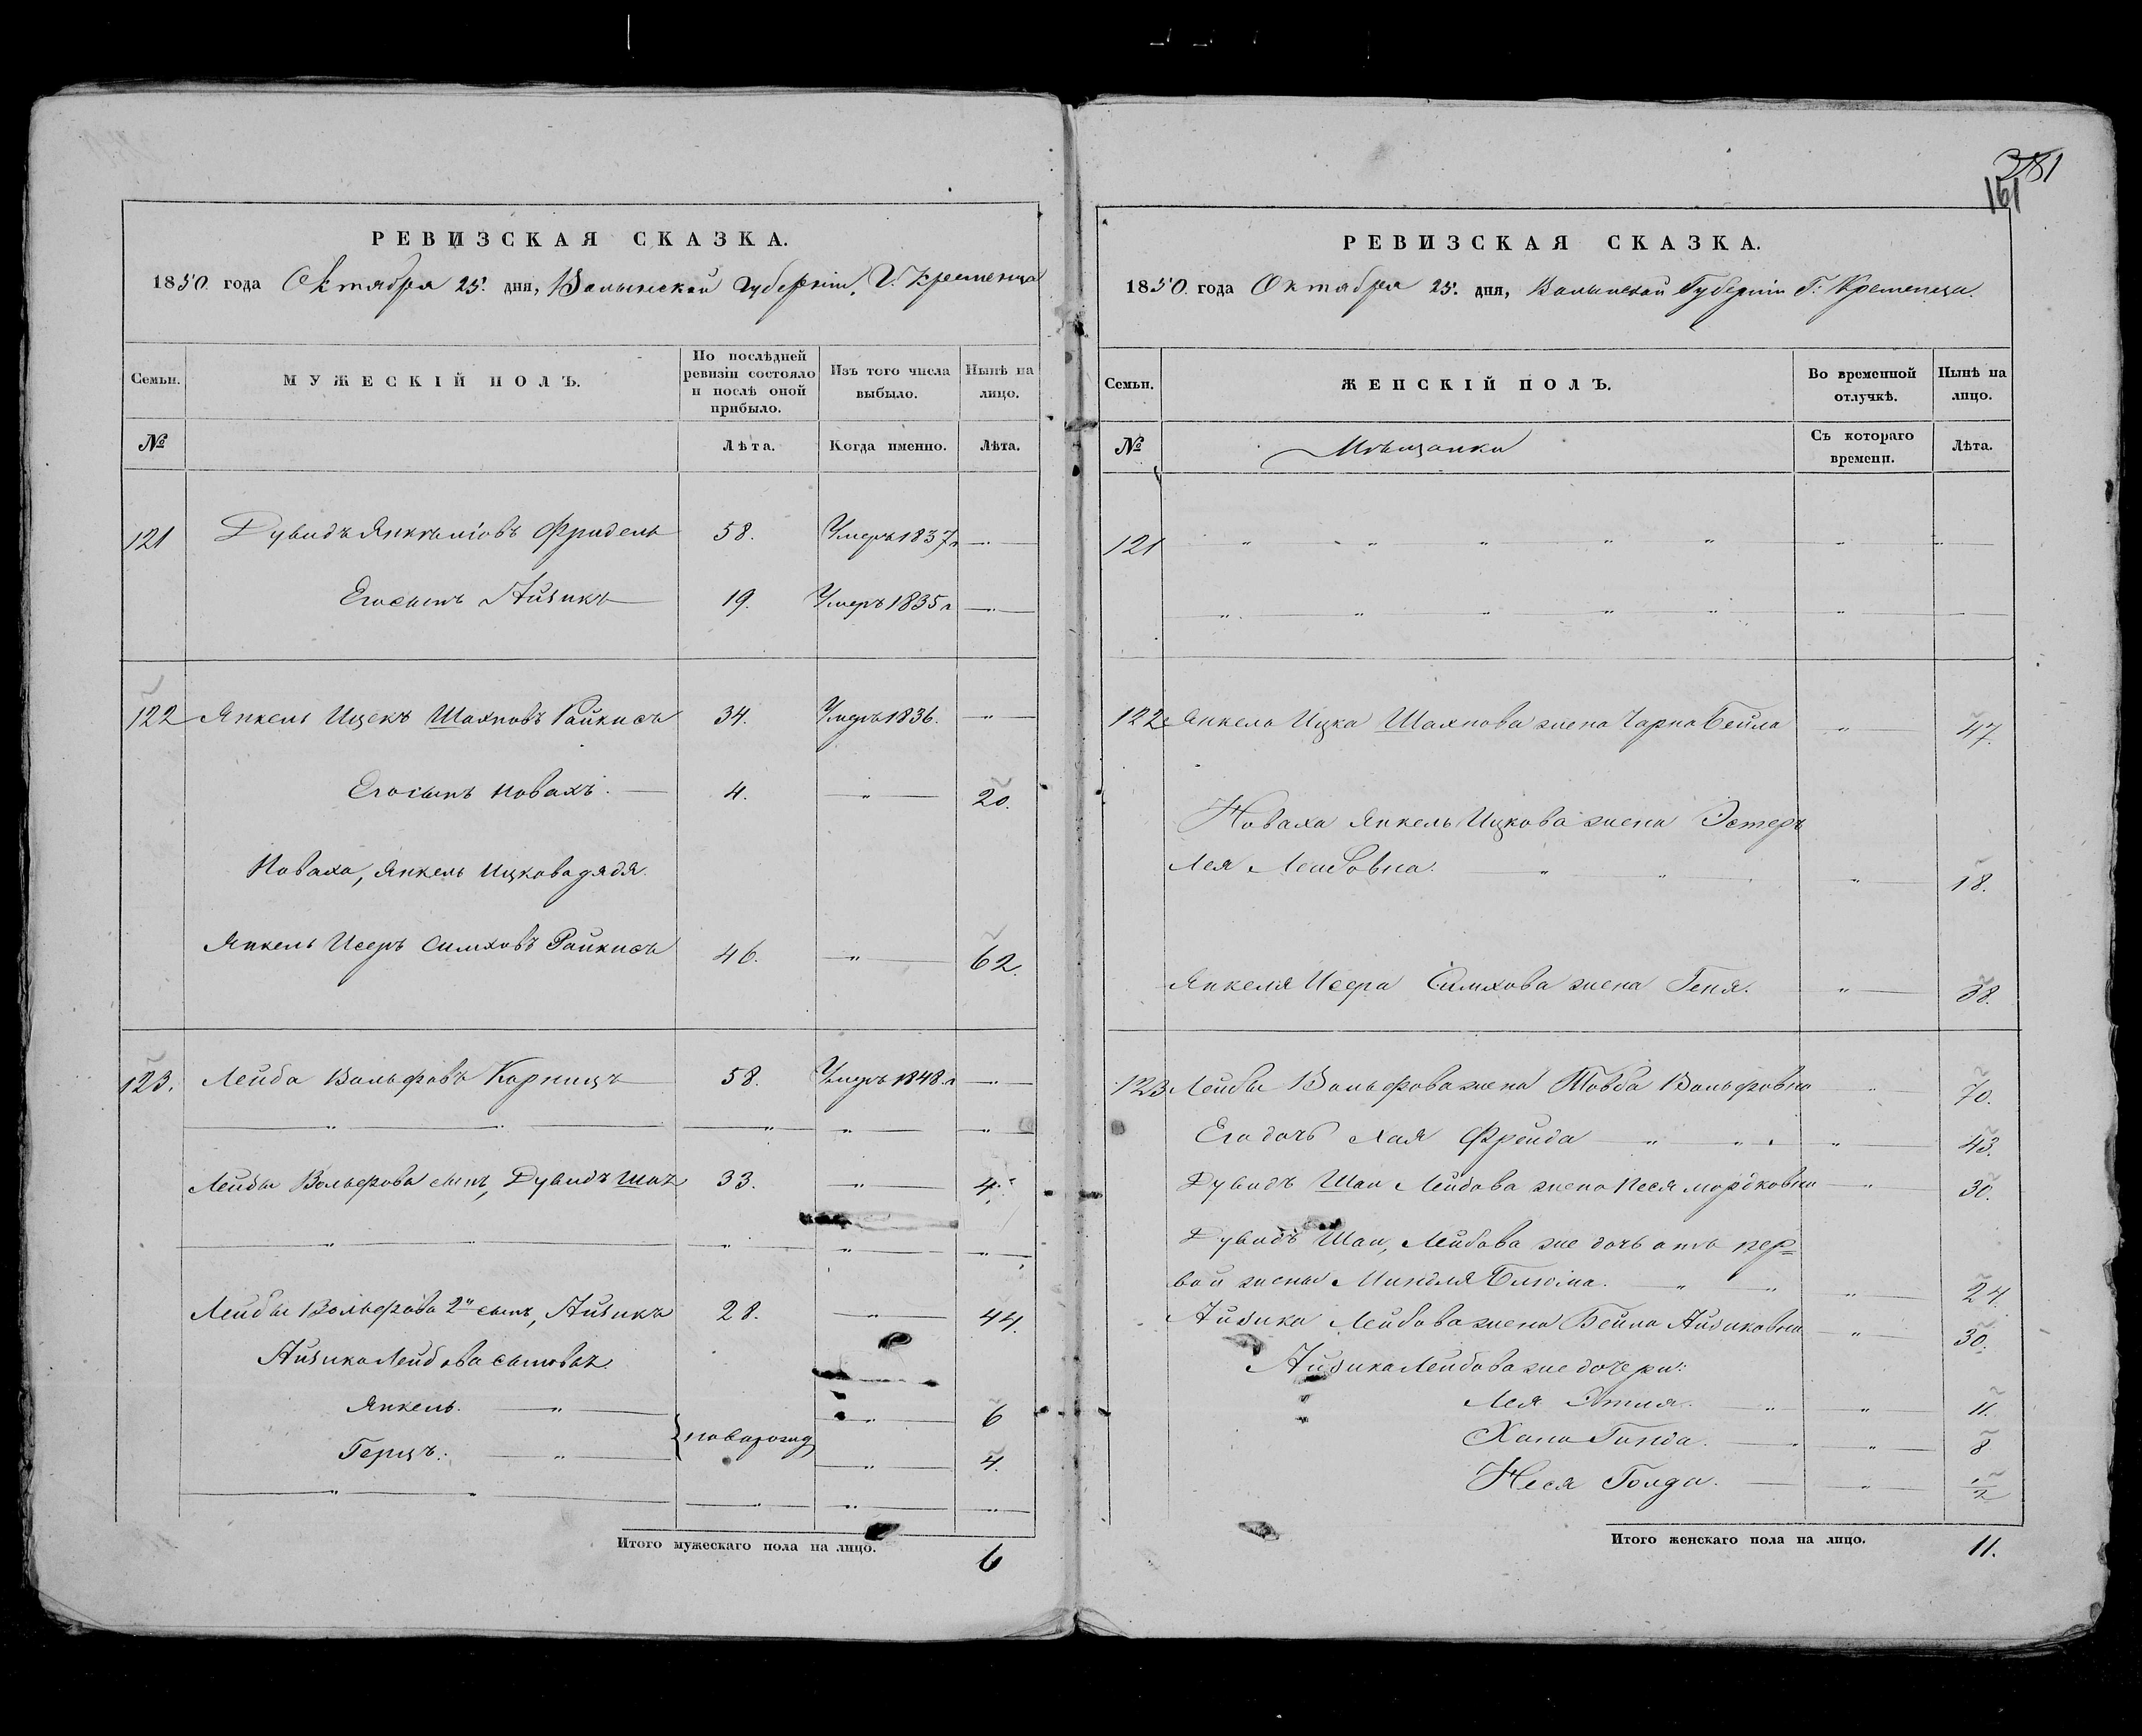 РЕВИЗСКАЯ СКАЗКА.
1850. года Октября 25. дня, Волынской Губерніи, Г. Кременца
Семьи.
МУЖЕСКІЙ ПОЛЪ.
По послѣдней ревизіи состояло и послѣ оной прибыло.
Изъ того числа выбыло.
Нынѣ на лицо.
№
Лѣта.
Когда именно.
Лѣта.
121 Дувидъ Янкеліовъ Фридель 58. Умеръ 1837г — " —
Его сынъ Айзикъ 19. Умеръ 1835г — " —
122 Янкель Ицекъ Шахновъ Райкисъ 34. Умеръ 1836. — " —
Его сынъ Новахъ. 4. — " — 20.
Новаха, Янкель Ицкова дядя.
Янкель Исеръ Симховъ Райкисъ 46. — " — 62.
123. Лейба Вольфовъ Корницъ 58. Умеръ 1848.г — " —
Лейбы Вольфова сынъ, Дувидъ Шая 33. — " —
Лейбы Вольфова 2й сынъ, Айзикъ 28. — " — 44.
Айзика Лейбова сыновья
Янкель. — " — 6
новорожд
Герцъ. — " — 4.
Итого мужескаго пола на лицо. 6
381
161
РЕВИЗСКАЯ СКАЗКА.
1850. года Октября 25. дня, Волынской Губерніи Г. Кременца.
Семьи.
ЖЕНСКІЙ ПОЛЪ.
Во временной отлучкѣ.
Нынѣ на лицо.
№
Мѣщанки
Съ котораго времени.
Лѣта.
121 " " " " " " — " —
122. Янкеля Ицка Шахнова жена Чарна Бейла — " — 47.
Новаха Янкель Ицкова жена Эстеръ
Лея Лейбовна. — " — 18.
Янкеля Исера Симхова жена Геня. — " — 38.
123 Лейбы Вольфова жена Товба Вольфовна — " — 70.
Его дочь Хая Фрейда — " — 43.
Дувидъ Шаи Лейбова жена Неся Мордковна — " — 30.
Дувидъ Шаи, Лейбова же дочь отъ пер=
вой жены Миндля Блюма. — " — 24.
Айзика Лейбова жена Бейла Айзиковна — " — 30.
Айзика Лейбова же дочери:
Лея Этля. — " — 11.
Хана Гинда. — " — 8
Неся Голда. — " — 1/2
Итого женскаго пола на лицо. 11.